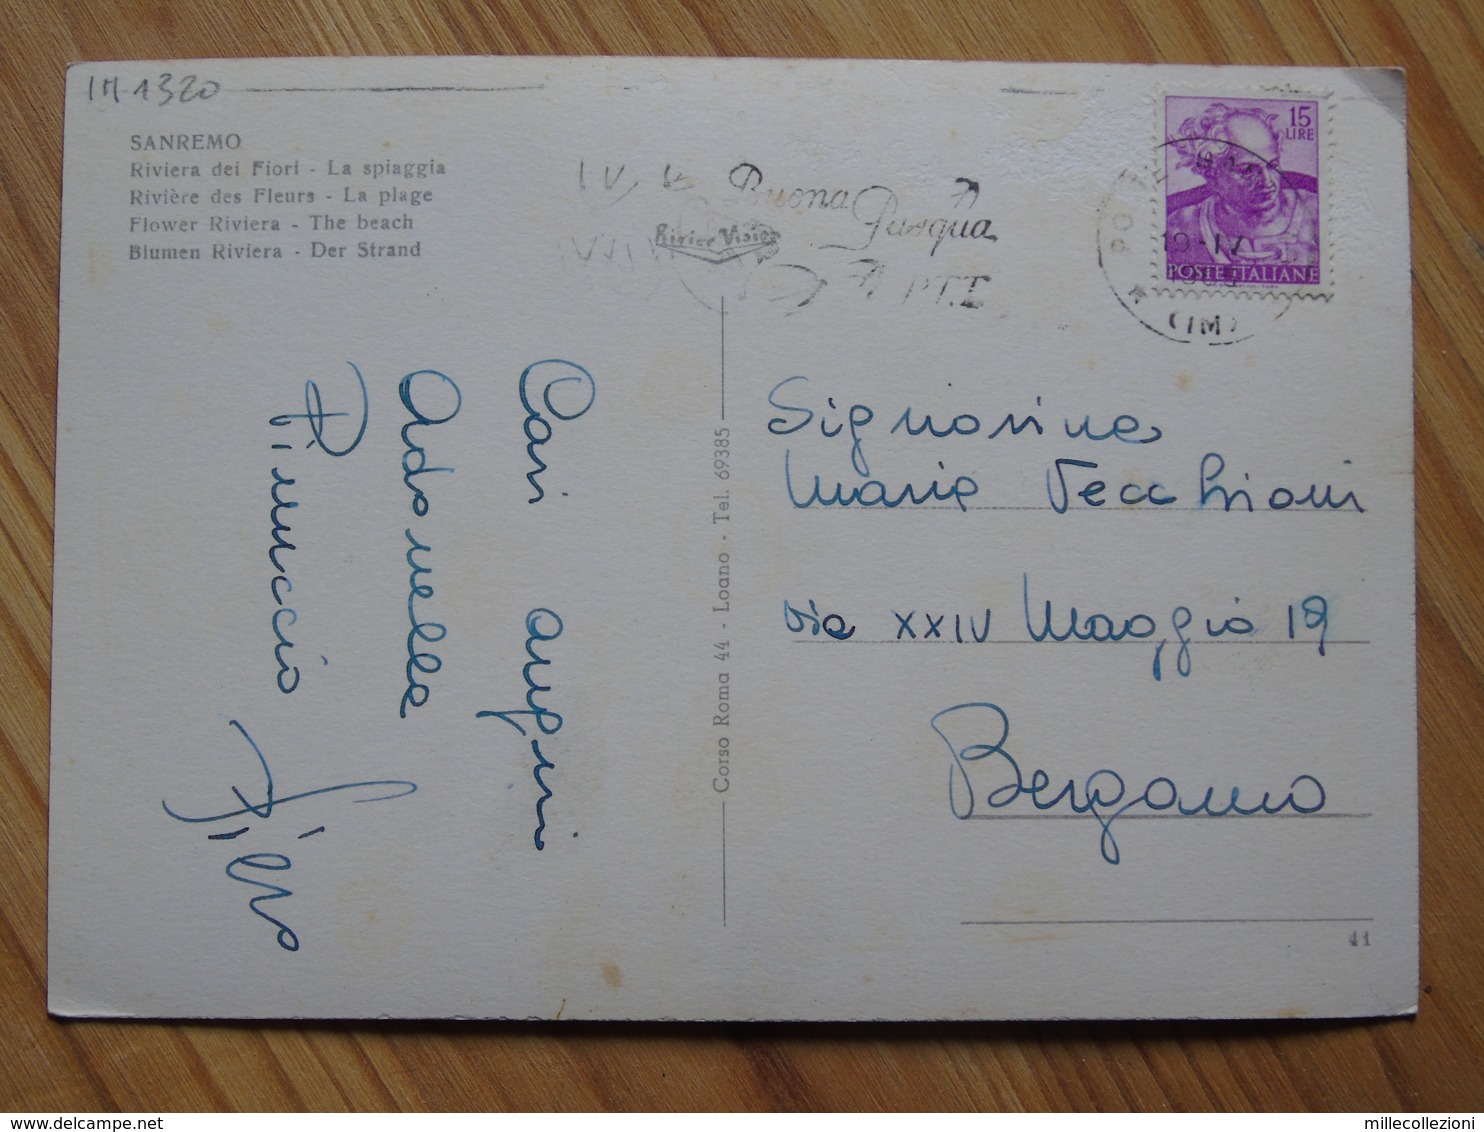 IM-1320
SANREMO
Riviera dei Fiori - La spiaggia
Rivière des Fleurs - La plage
Flower Riviera - The beach
Blumen Riviera - Der Strand
Buona
Pasqua
P.T.
15
LIRE
POSTE ITALIANE
POSTE
19-IV
(IM)
Cari auguri
Antonella
Pinuccio
Corso Roma 44 - Loano - Tel. 69385
Signorina
Maria Vecchioni
via XXIV Maggio 19
Bergamo
41
delcampe.net
millecollezioni